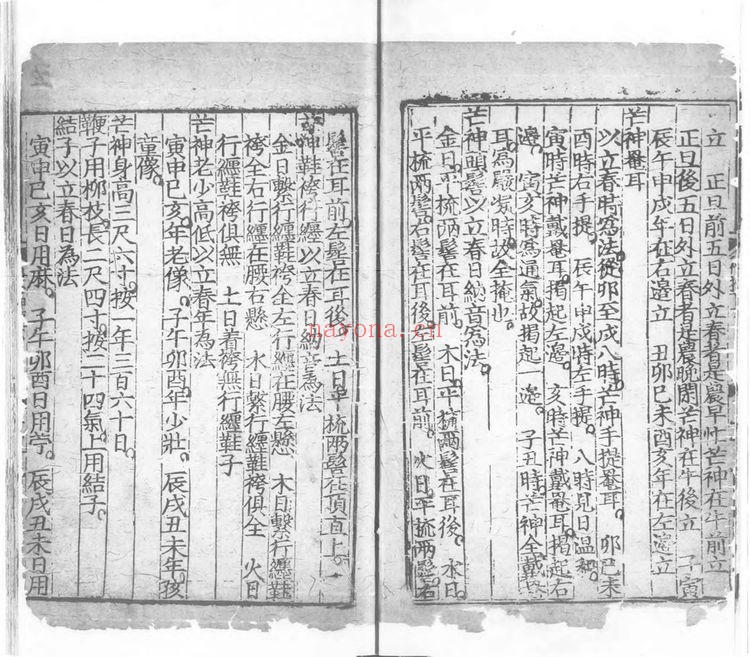 立　正旦前五日外立春者是農早忙芒神在牛前立
正旦後五日外立春者是農晚閑芒神在牛後立　子寅
辰午申戌年在右邊立　丑卯巳未酉亥年在左邊立
芒神罨耳
以立春時爲法從卯至戌八時芒神手提罨耳　卯巳未
酉時右手提　辰午申戌時左手提　八時見日溫和
寅時芒神戴罨耳揭起左邊　亥時芒神戴罨耳揭起右
邊　寅亥時爲通氣故揭起一邊　子丑時芒神全戴
耳爲嚴凝時故全掩也
芒神頭髻以立春日納音爲法
金日平梳兩髻在耳前　木日平梳兩髻在耳後　水日
平梳兩髻右髻在耳後左髻在耳前　火日平梳兩髻右
髻在耳前左髻在耳後　土日平梳兩髻在頂直上
芒神鞋袴行纏以立春日納音爲法
金日繫行纏鞋袴全左行纏在腰左懸　木日繫行纏鞋
袴全右行纏在腰右懸　水日繫行纏鞋袴俱全　火日
行纏鞋袴俱無　土日着袴無行纏鞋子
芒神老少高低以立春年爲法
寅申巳亥年老像　子午卯酉年少壯　辰戌丑未年孩
童像
芒神身高三尺六寸按一年三百六十日
鞭子用柳枝長二尺四寸按二十四氣上用結子
結子以立春日爲法
寅申巳亥日用麻　子午卯酉日用苧　辰戌丑未日用
nayona.cn